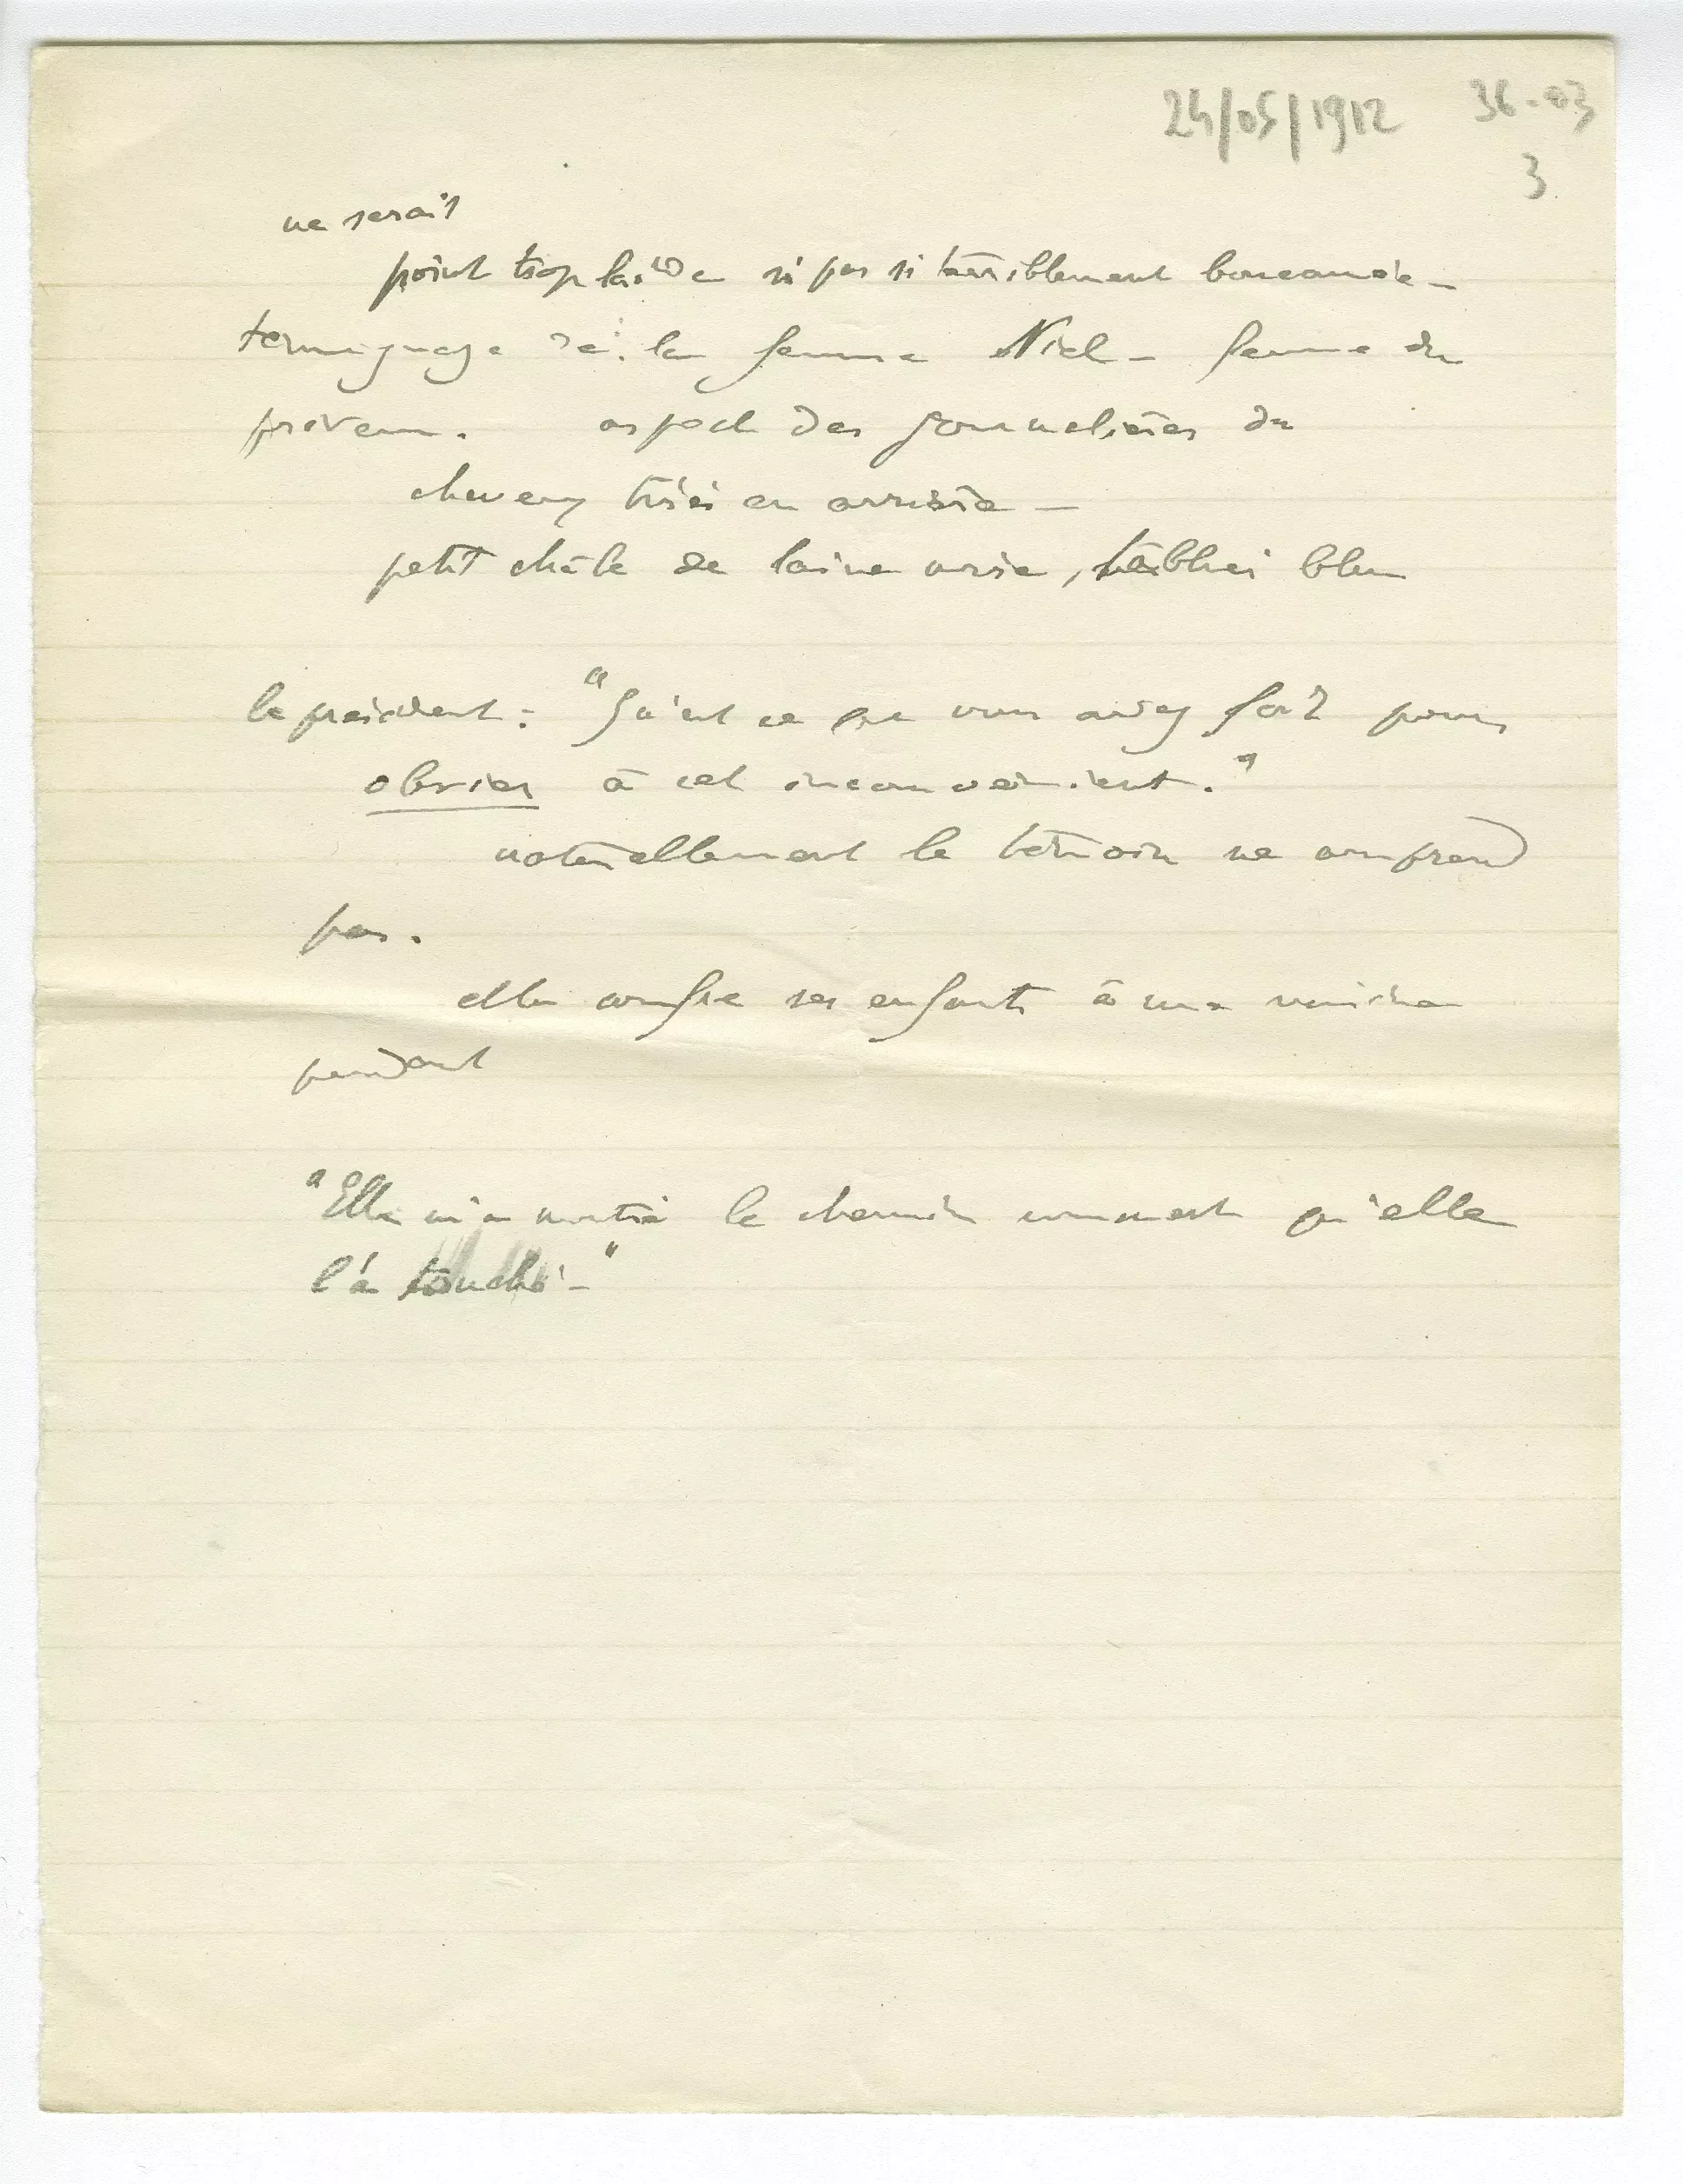 24/05/1912 36-03
3
ne serait
point trop laide si pas si terriblement boucanée –
temoignage de la femme Niel – femme du
prévenu. aspect des journalières du
cheveux tirés en arrière –
petit châle de laine noire, tablier bleu
le président : "Qu'est ce que vous avez fait pour
obvier à cet inconvénient."
naturellement le témoin ne comprend
pas.
elle confie ses enfants à une voisine
pendant
"Elle m'a montré le chemin comment qu'elle
l'a touché –"